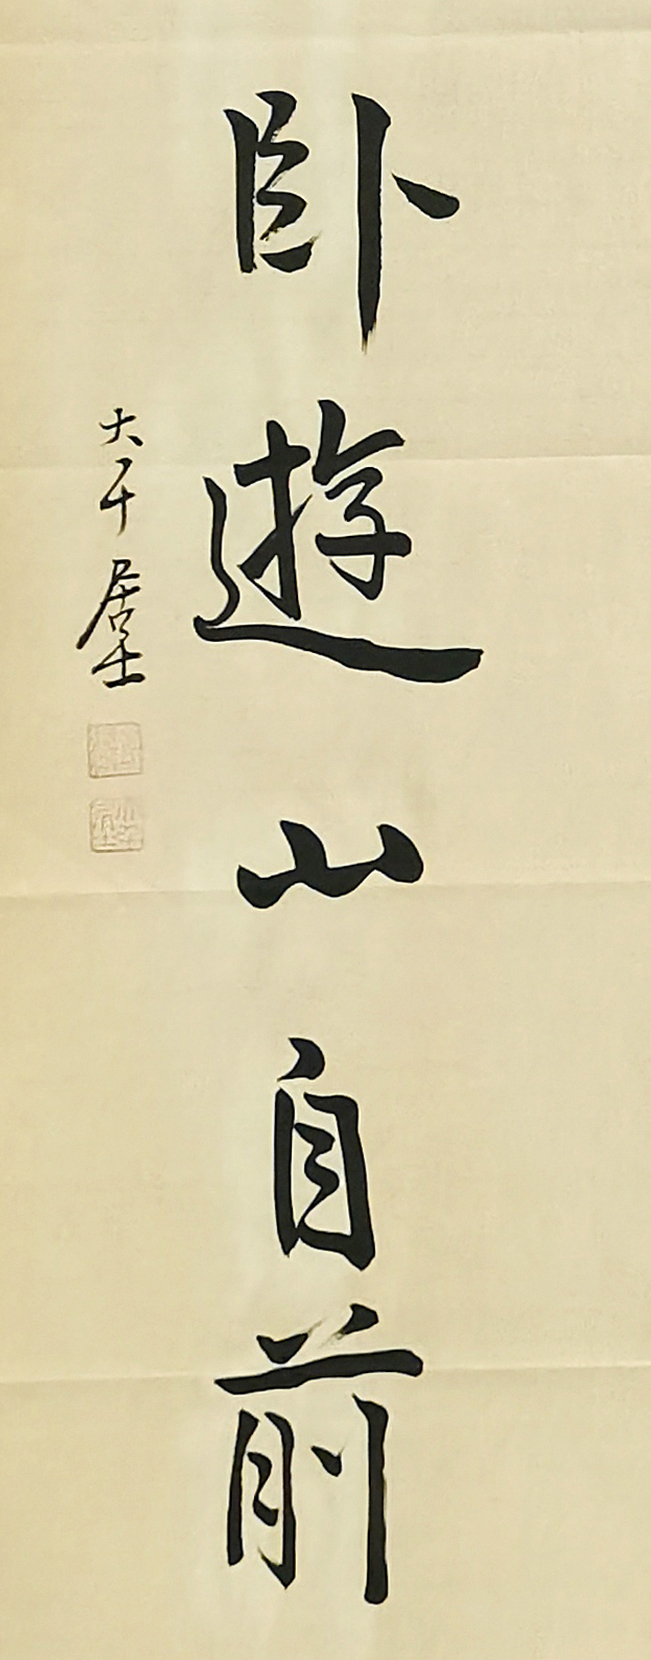 卧遊山自前
大千居士